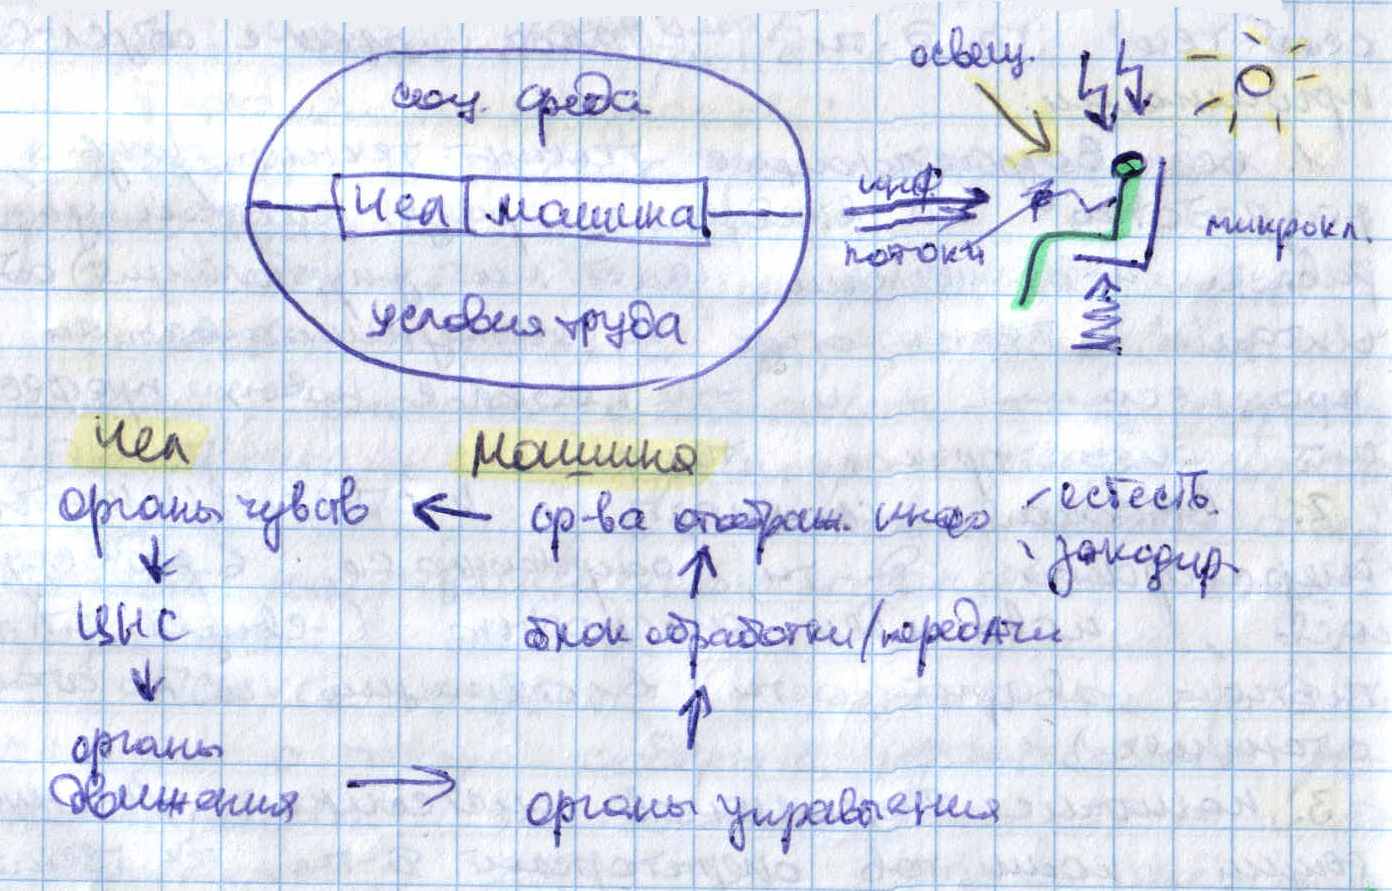 соц. среда
Чел машина
условия труда
освещ.
инф
потоки
микрокл.
Чел
Машина
органы чувств
ср-ва отображ. инфо
естеств.
закодир.
ЦНС
блок обработки/передачи
органы
движения
органы управления